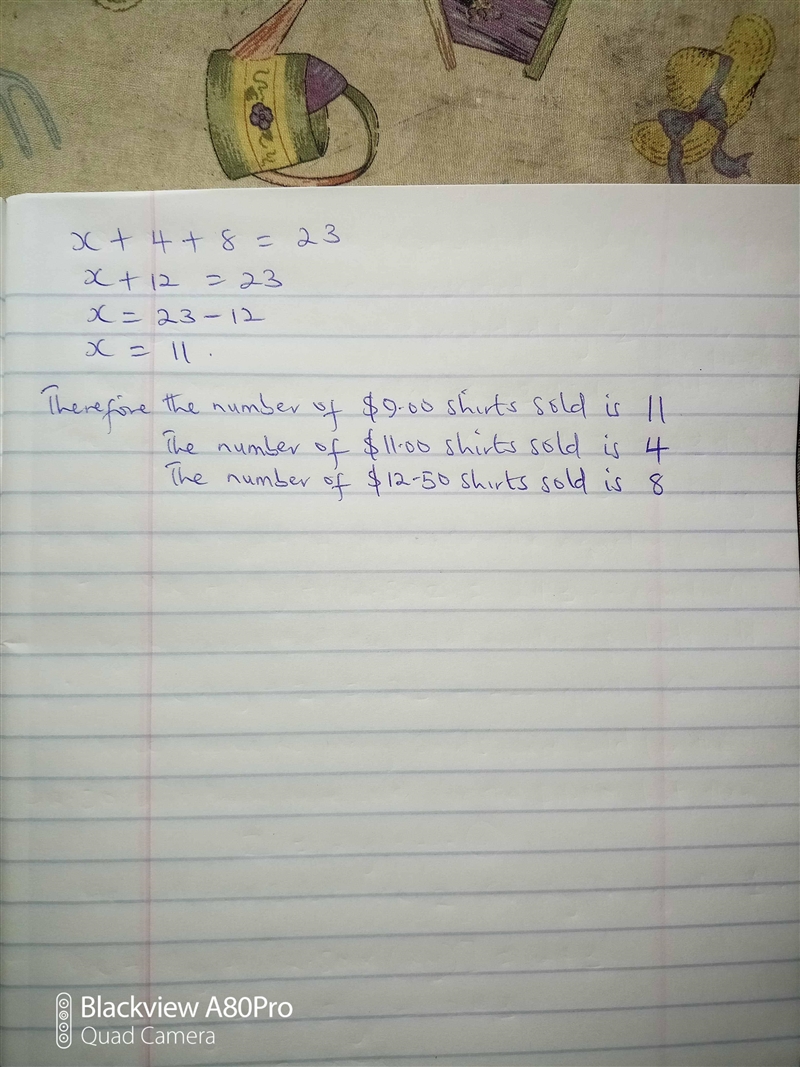 x + 4 + 8 = 23
x + 12 = 23
x = 23 - 12
x = 11.
Therefore the number of $9.00 shirts sold is 11
The number of $11.00 shirts sold is 4
The number of $12-50 shirts sold is 8
Blackview A80Pro
Quad Camera